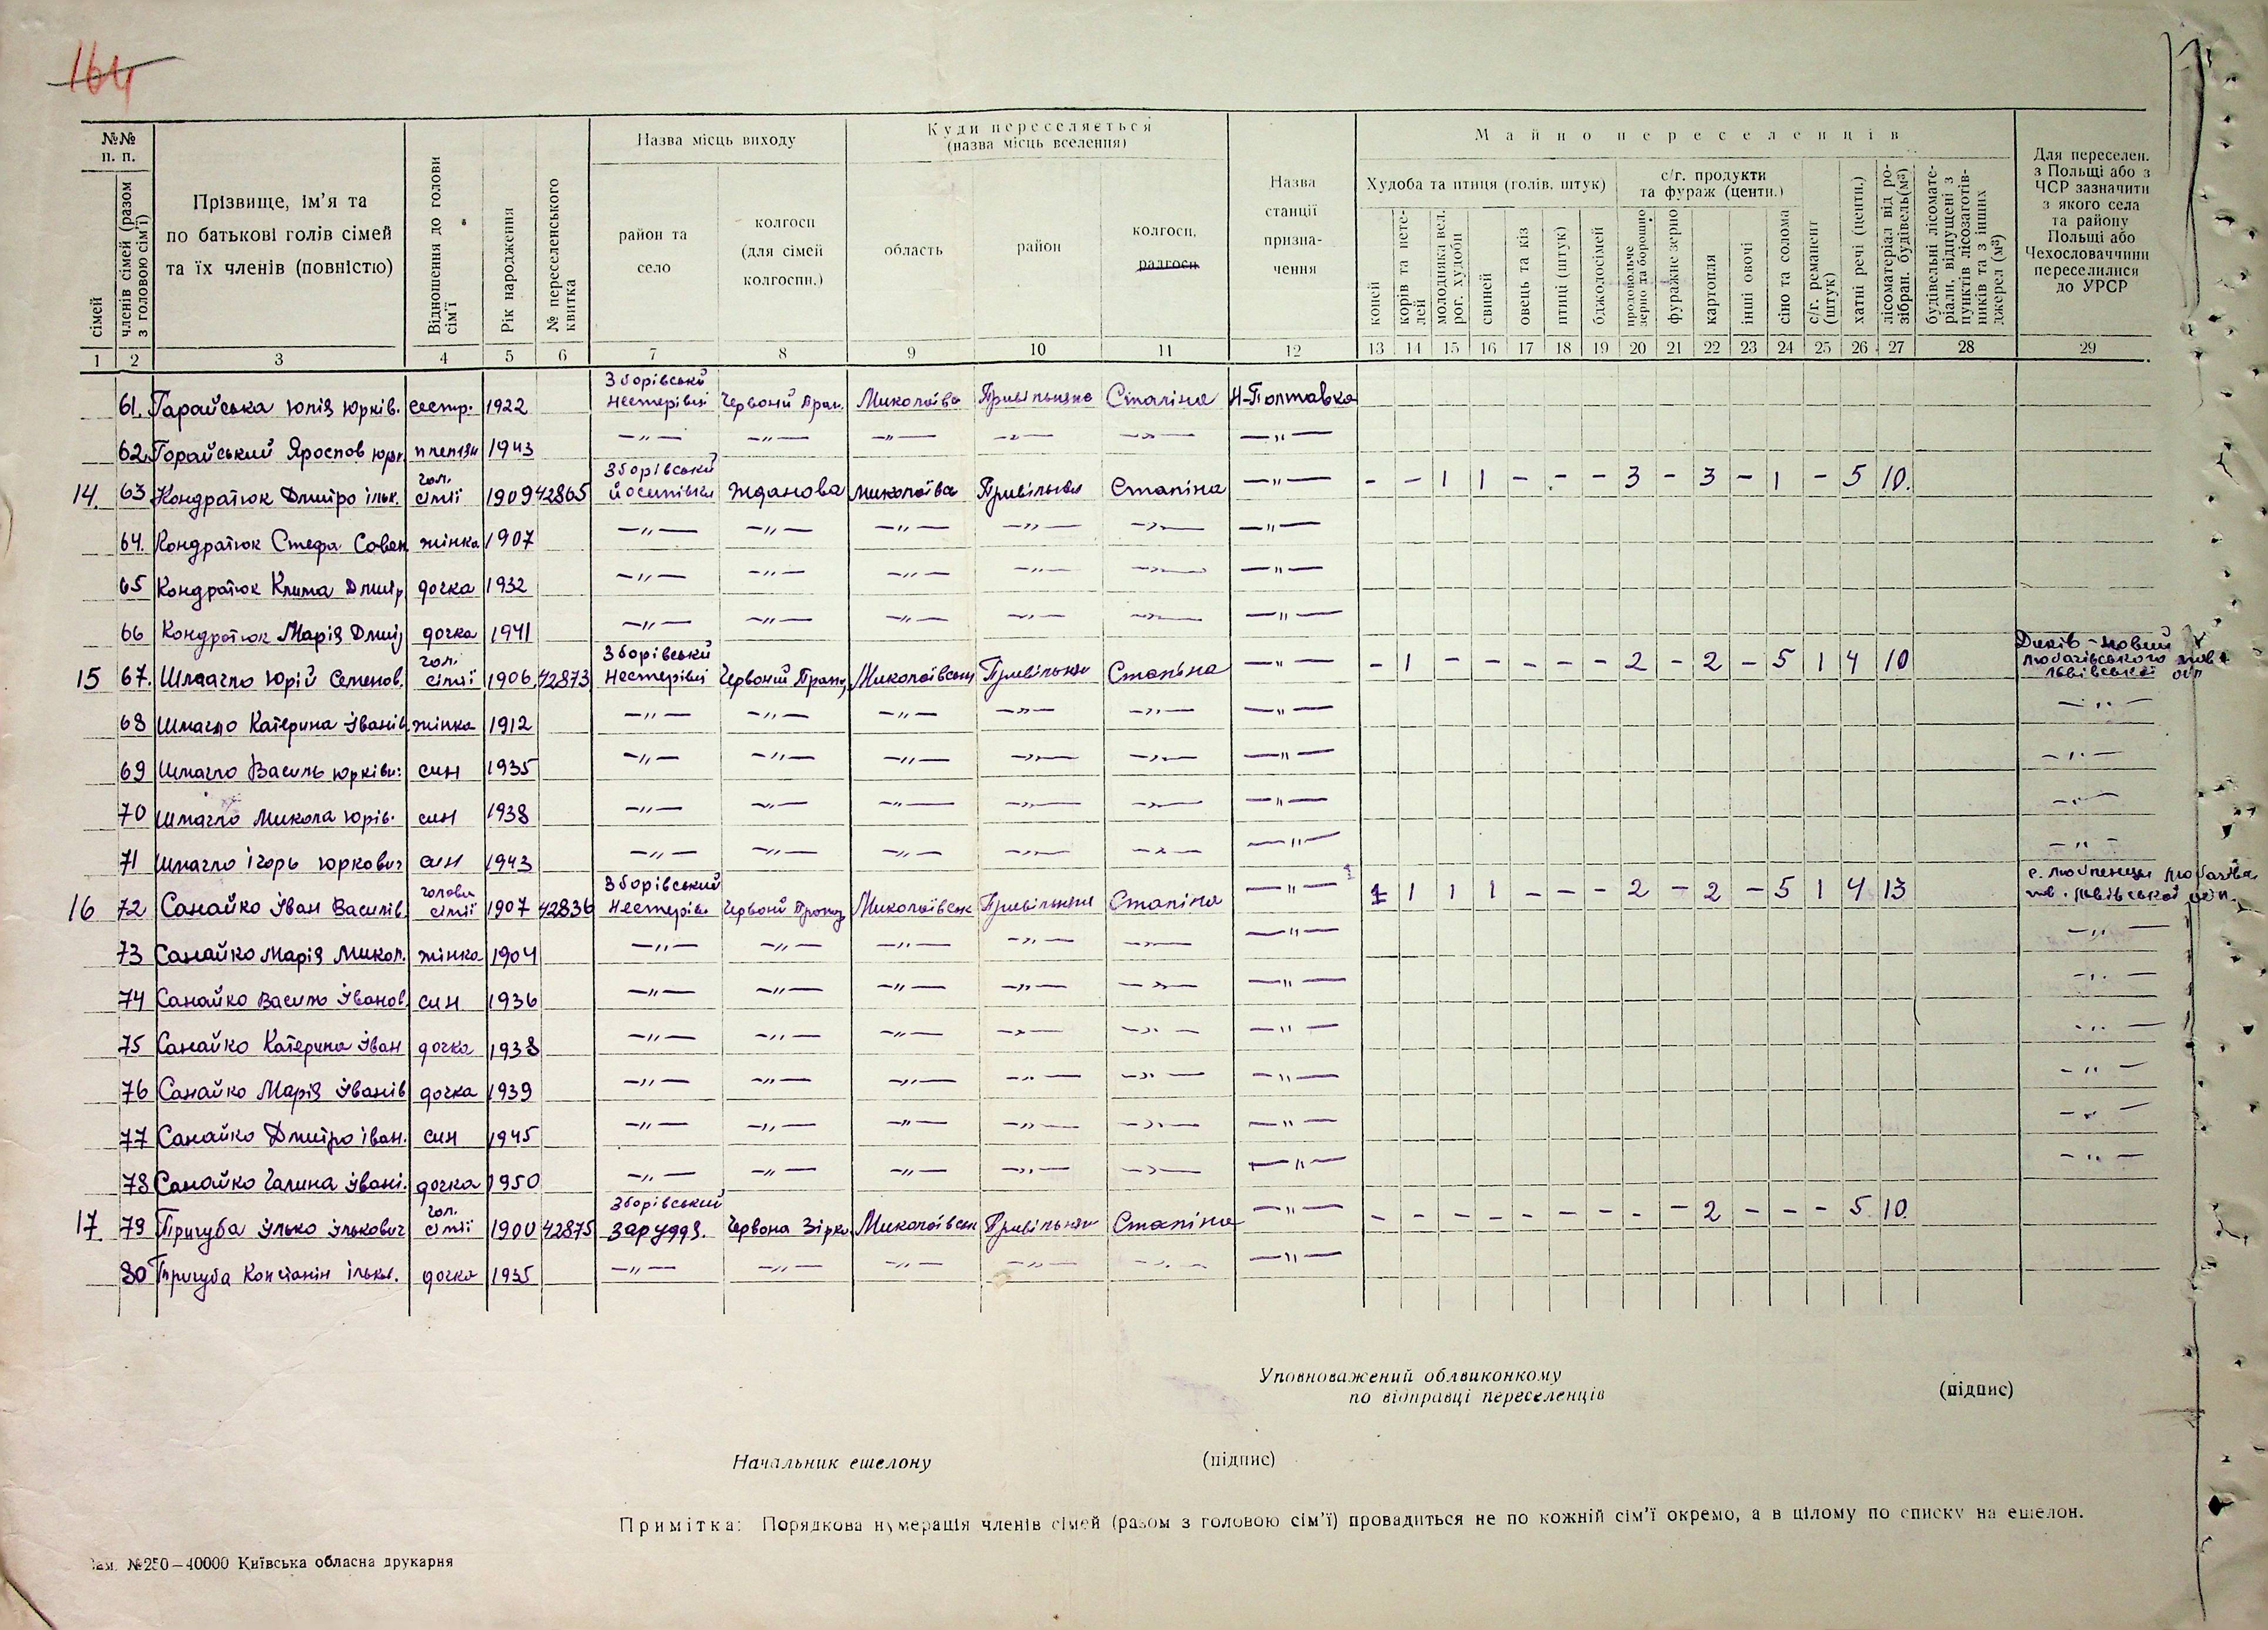 164
№№ п. п.
сімей
членів сімей (разом з головою сім'ї)
Прізвище, ім'я та по батькові голів сімей та їх членів (повністю)
Відношення до голови сім'ї
Рік народження
№ переселенського квитка
Назва місць виходу
район та село
колгосп (для сімей колгоспн.)
Куди переселяється (назва місць вселення)
область
район
колгосп, радгосп
Назва станції призначення
Майно переселенців
Худоба та птиця (голів, штук)
коней
корів та нетелей
молодняка вел. рог. худоби
свиней
овець та кіз
птиці (штук)
бджолосімей
с/г. продукти та фураж (центн.)
продовольче зерно та борошно
фуражне зерно
картопля
інші овочі
сіно та солома
с/г. реманент (штук)
хатні речі (центн.)
лісоматеріал від розібран. будівель(м³)
будівельні лісоматеріали, відпущені з пунктів лісозаготівників та з інших джерел (м³)
Для переселен. з Польщі або з ЧСР зазначити з якого села та району Польщі або Чехословаччини переселилися до УРСР
1 2 3 4 5 6 7 8 9 10 11 12 13 14 15 16 17 18 19 20 21 22 23 24 25 26 27 28 29
61. Гарайська Юлія Юрків. сестр. 1922 Зборівський Нестерівці Червоний Прап. Миколаївс Привільняне Сталіна Н-Полтавка
62. Горайський Ярослов Юрк. племян 1943 —"— —"— —"— —"— —"— —"—
14. 63 Кондратюк Дмитро Ільк. гол. сімїі 1909 42865 Зборівський Йосипівка Жданова Миколаївсь Привільнян Сталіна —"— - - 1 1 - - - 3 - 3 - 1 - 5 10.
64. Кондратюк Стефа Савел жінка 1907 —"— —"— —"— —"— —"— —"—
65 Кондратюк Клима Дмитр дочка 1932 —"— —"— —"— —"— —"— —"—
66 Кондратюк Марія Дмит дочка 1941 —"— —"— —"— —"— —"— —"—
15 67. Шмагло Юрій Семенов. гол. сімїі 1906 42873 Зборівський Нестерівці Червоний Прапор Миколаївськ Привільнян Сталіна —"— - 1 - - - - - 2 - 2 - 5 1 4 10 Диків-Новий Любачівського пов. Львівської обл
68 Шмагло Катерина Іванів. жінка 1912 —"— —"— —"— —"— —"— —"— —"—
69 Шмагло Василь Юркови: син 1935 —"— —"— —"— —"— —"— —"— —"—
70 Шмагло Микола Юрів. син 1938 —"— —"— —"— —"— —"— —"— —"—
71 Шмагло Ігорь Юркович син 1943 —"— —"— —"— —"— —"— —"— —"—
16 72 Санайко Іван Василів голова сімїі 1907 42836 Зборівський Нестерів. Червоний Прапор Миколаївськ Привільнян Сталіна —"— 1 1 1 1 - - - 2 - 2 - 5 1 4 13 с. Люблинець Любачівс пов. Львівської обл.
73 Санайко Марія Микол. жінка 1904 —"— —"— —"— —"— —"— —"— —"—
74 Санайко Василь Іванов. син 1936 —"— —"— —"— —"— —"— —"— —"—
75 Санайко Катерина Іван дочка 1938 —"— —"— —"— —"— —"— —"— —"—
76 Санайко Марія Іванів дочка 1939 —"— —"— —"— —"— —"— —"— —"—
77 Санайко Дмитро Іван. син 1945 —"— —"— —"— —"— —"— —"— —"—
78 Санайко Галина Івані. дочка 1950 —"— —"— —"— —"— —"— —"— —"—
17 79 Тригуба Ілько Ількович гол. сімїі 1900 42875 Зборівський Заруддя. Червона Зірка Миколаївськ Привільнян Сталіна —"— - - - - - - - - - 2 - - - 5 10
80 Тригуба Констанін Ільков. дочка 1935 —"— —"— —"— —"— —"— —"—
Уповноважений облвиконкому
по відправці переселенців (підпис)
Начальник ешелону (підпис)
Примітка: Порядкова нумерація членів сімей (разом з головою сім'ї) провадиться не по кожній сім'ї окремо, а в цілому по списку на ешелон.
Зам. №250—40000 Київська обласна друкарня